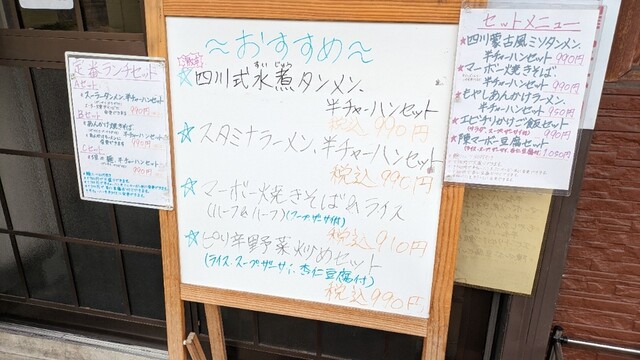 定番ランチセット
Aセット
★スーラータンメン、半チャーハンセット
990円
Bセット
★あんかけ焼きそば
半チャーハンセット
990円
Cセット
半チャーハンセット
990円
～おすすめ～
すいじゅう
☆四川式水煮タンメン、
半チャーハンセット
税込990円
☆スタミナラーメン、半チャーハンセット
税込990円
☆マーボー焼きそば&ライス
(ハーフ&ハーフ)(スープ・ザーサイ付)
税込910円
☆ピリ辛野菜炒めセット
(ライス・スープ・ザーサイ、杏仁豆腐付)
税込990円
セットメニュー
★四川蒙古風ミソタンメン、
半チャーハンセット 990円
★マーボー焼きそば
半チャーハンセット 990円
★もやしあんかけラーメン、
半チャーハンセット 950円
★エビチリかけご飯セット
990円
★陳マーボー豆腐セット
1,050円